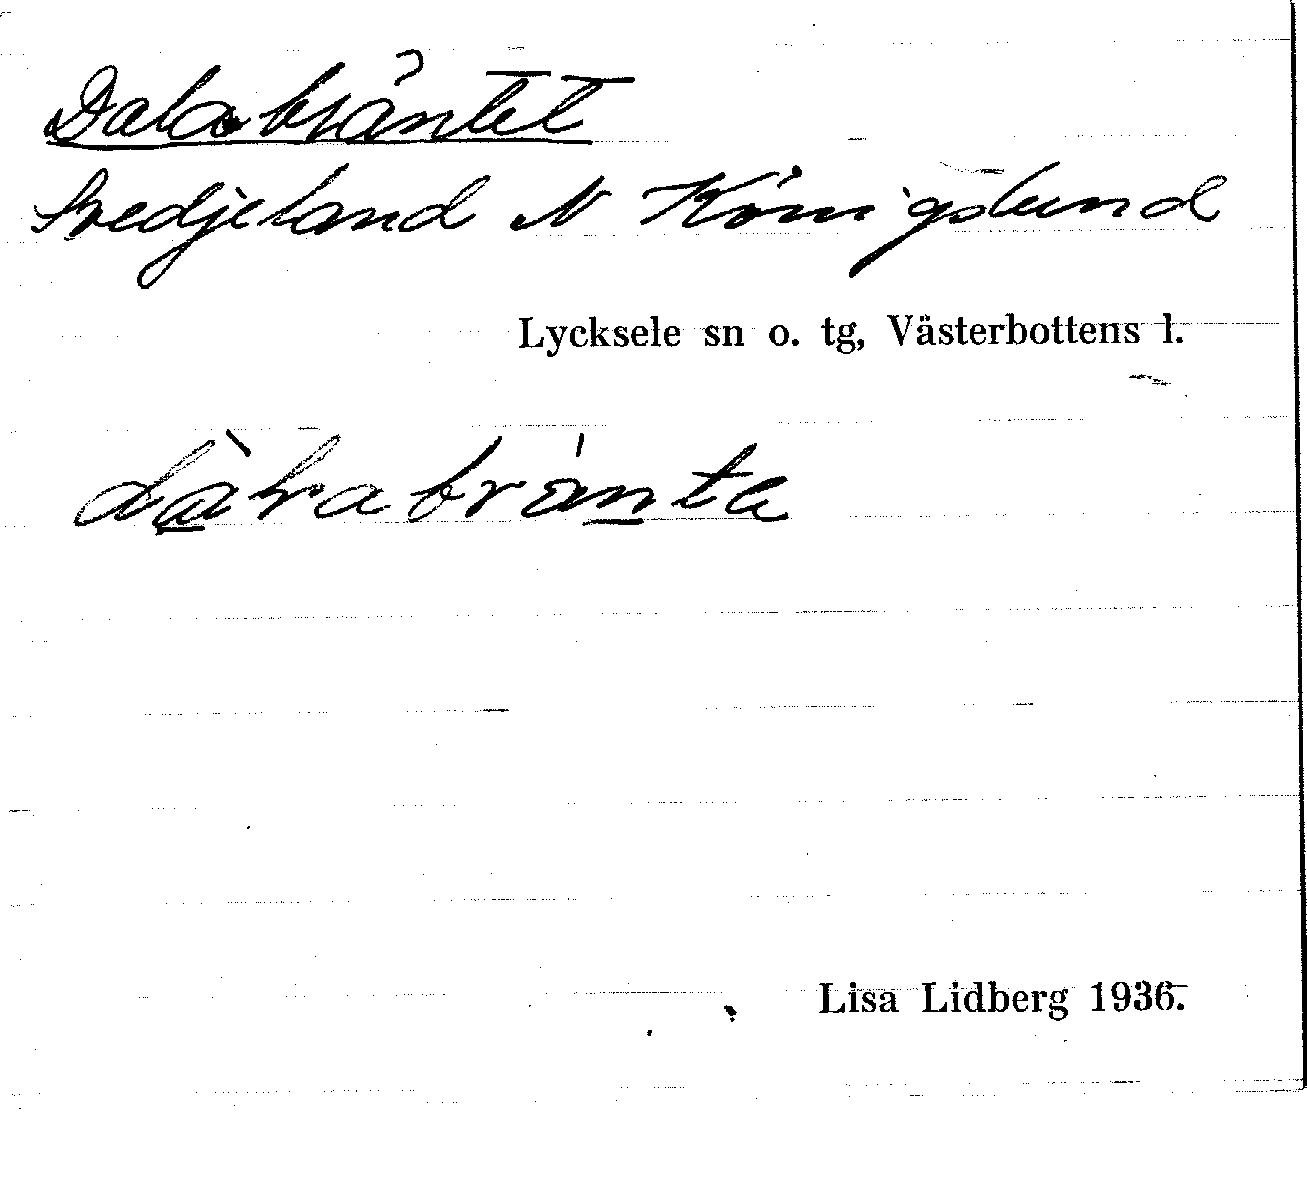 Dalabräntet
Svedjeland N Königslund
Lycksele sn o. tg, Västerbottens l.
Lisa Lidberg 1936.